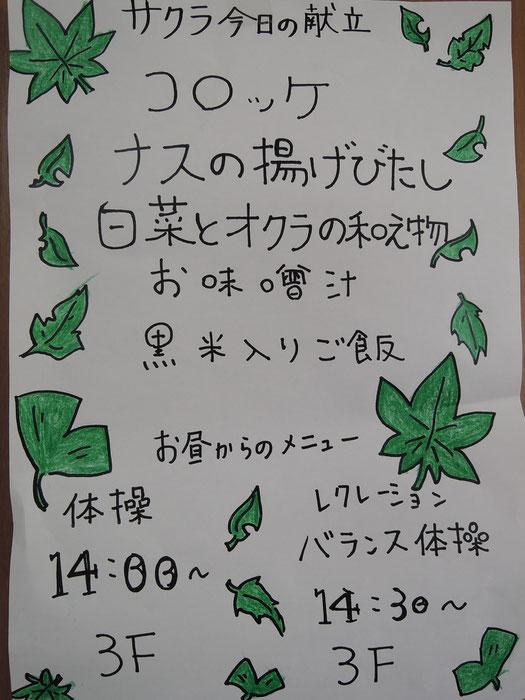 サクラ今日の献立
コロッケ
ナスの揚げびたし
白菜とオクラの和え物
お味噌汁
黒米入りご飯
お昼からのメニュー
体操
14:00～
3F
レクレーション
バランス体操
14:30～
3F